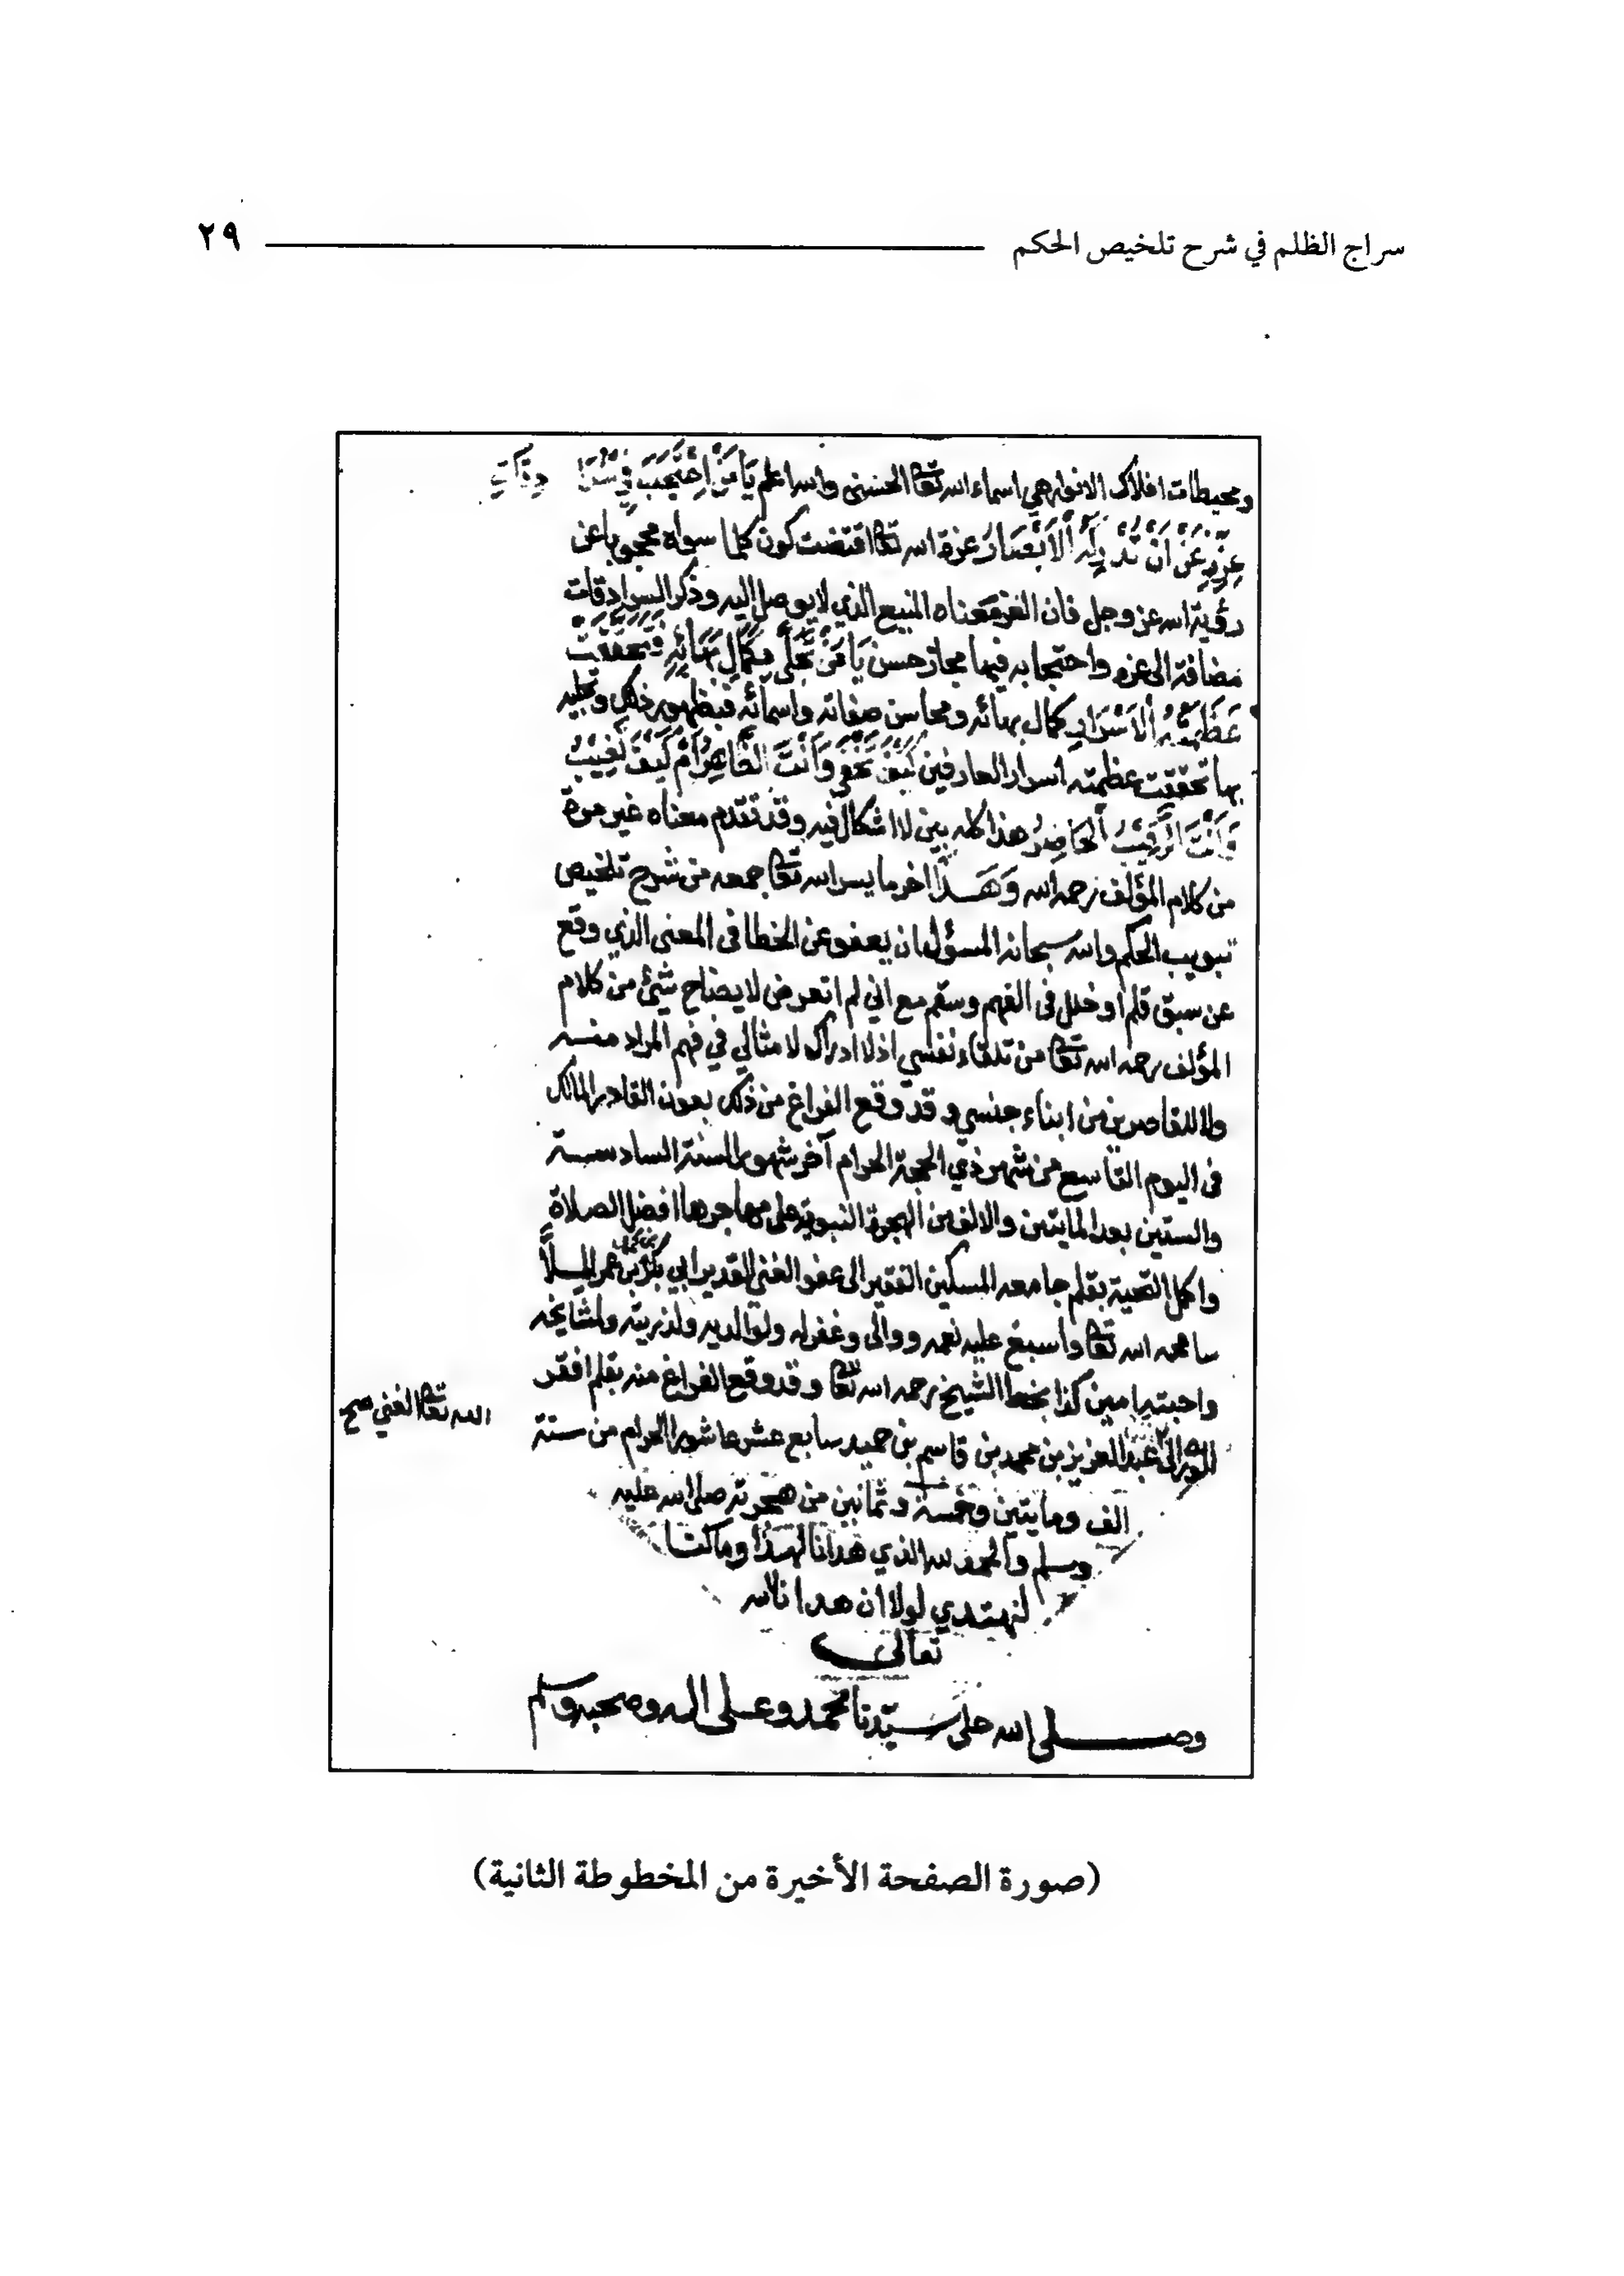 سراج الظلم في شرح تلخيص الحكم ٢٩
ومحيطات افلاك الانوار هي اسماء الله تعا الحسنى والله اعلم يَا مَنْ اِحْتَجَبَ فِي سُرَا دِقَاتِ
عِزِّهِ عَنْ اَنْ تُدْرِكَهُ الْاَبْصَارُ عزة الله تعا اقتضت كون كلما سواه محجوبا عن
رؤية الله عز وجل فان العز معناه المنيع الذي لا يوصل اليه وذكر السرادقات
مضافة الى عزه واحتجابه فيها مجاز حسن يَا مَنْ تَجَلَّى بِكَمَالِ بَهَائِهِ فَتَحَقَّقَتْ
عَظَمَتَهُ الْاَسْرَارُ كمال بهائه ومحاسن صفاته واسمائه فبظهور ذلك وتجليه
بها تحققت عظمته اسرار العارفين كَيْفَ تَخْفَى وَاَنْتَ الظَّاهِرُ اَمْ كَيْفَ تَغِيبُ
وَاَنْتَ الرَّقِيْبُ الْحَاضِرُ هذا كله بين لا اشكال فيه وقد تقدم معناه غير مرة
من كلام المؤلف رحمه الله وَهَـذَا اخر ما يسر الله تعا جمعه من شرح تلخيص
تبويب الحكم والله سبحانه المسؤل ان يعفو عن الخطا في المعنى الذي وقع
عن سبق قلم او خلل في الفهم وسقم مع اني لم اتعرض لايضاح شئ من كلام
المؤلف رحمه الله تعا من تلقاء نفسي اذ لا ادراك لا مثالي في فهم المراد منه
ولا للقاصرين من ابناء جنسي و قد وقع الفراغ من ذلك بعون القادر المالك
في اليوم التاسع من شهر ذي الحجة الحرام آخر شهور السنة السادسة
والستين بعد المايتين والالف من الهجرة النبوية على مهاجرها افضل الصلاة
واكمل التحية بقلم جامعه المسكين الفقير الى عفو الغني القدير ابي بكر بن محمد بن عمر الملاَّ
سامحه الله تعا واسبغ عليه نعمه ووالى وغفر له ولوالديه ولذريته ولمشايخه
واحبته امين كذا بخط الشيخ رحمه الله تعا و قد وقع الفراغ منه بقلم افقر
الورى الى الله تعا الغني صح
عبد العزيز بن محمد بن قاسم بن حميد سابع عشر عاشورا الحرام من سنة
الف ومايتين وخمسة وثمانين من هجرته صلى الله عليه
وسلم والحمد لله الذي هدانا لهذا وما كنا
لنهتدي لولا ان هدانا الله
تعالى
وصلى الله على سيّدنا محمد وعلى اله وصحبه وسلم
(صورة الصفحة الأخيرة من المخطوطة الثانية)